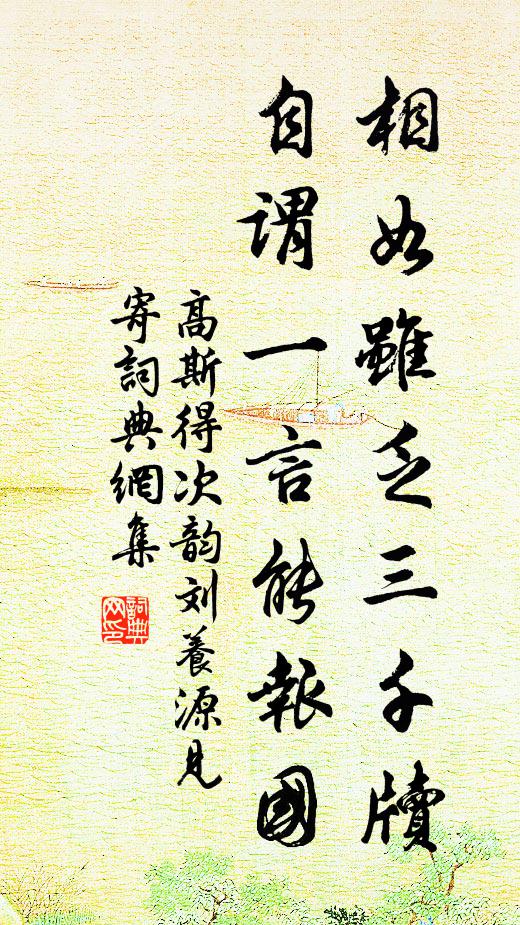 相如雖乏三千牘
自謂一言能報國
高斯得次韵刘養源見
寄詞典網集
詞典网印